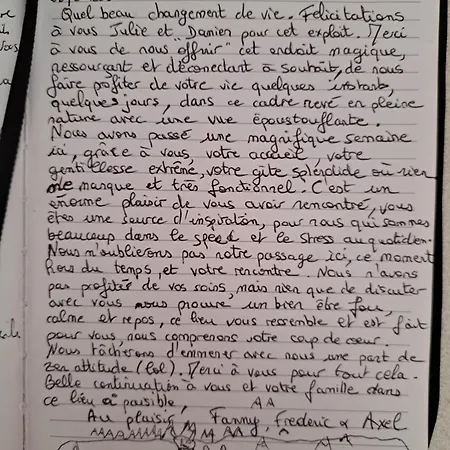 Quel beau changement de vie. Félicitations
à vous Julie et Damien pour cet exploit. Merci
à vous de nous "offrir" cet endroit magique,
ressourçant et déconectant à souhait, de nous
faire profiter de votre vie quelques instants,
quelques jours, dans ce cadre rêvé en pleine
nature avec une vue époustouflante.
Nous avons passé une magnifique semaine
ici, grâce à vous, votre accueil, votre
gentillesse extrême, votre gîte splendide où rien
ne manque et très fonctionnel. C'est un
énorme plaisir de vous avoir rencontré, vous
êtes une source d'inspiration, pour nous qui sommes
beaucoup dans le speed et le stress au quotidien.
Nous n'oublierons pas notre passage ici, ce moment
hors du temps, et votre rencontre. Nous n'avons
pas profité de vos soins, mais rien que de discuter
avec vous nous procure un bien être fou,
calme et repos, ce lieu vous ressemble et est fait
pour vous, nous comprenons votre coup de cœur.
Nous tâcherons d'emmener avec nous une part de
zen attitude (lol). Merci à vous pour tout cela.
Belle continuation à vous et votre famille dans
ce lieu paisible,
Au plaisir Fanny, Frederic & Axel